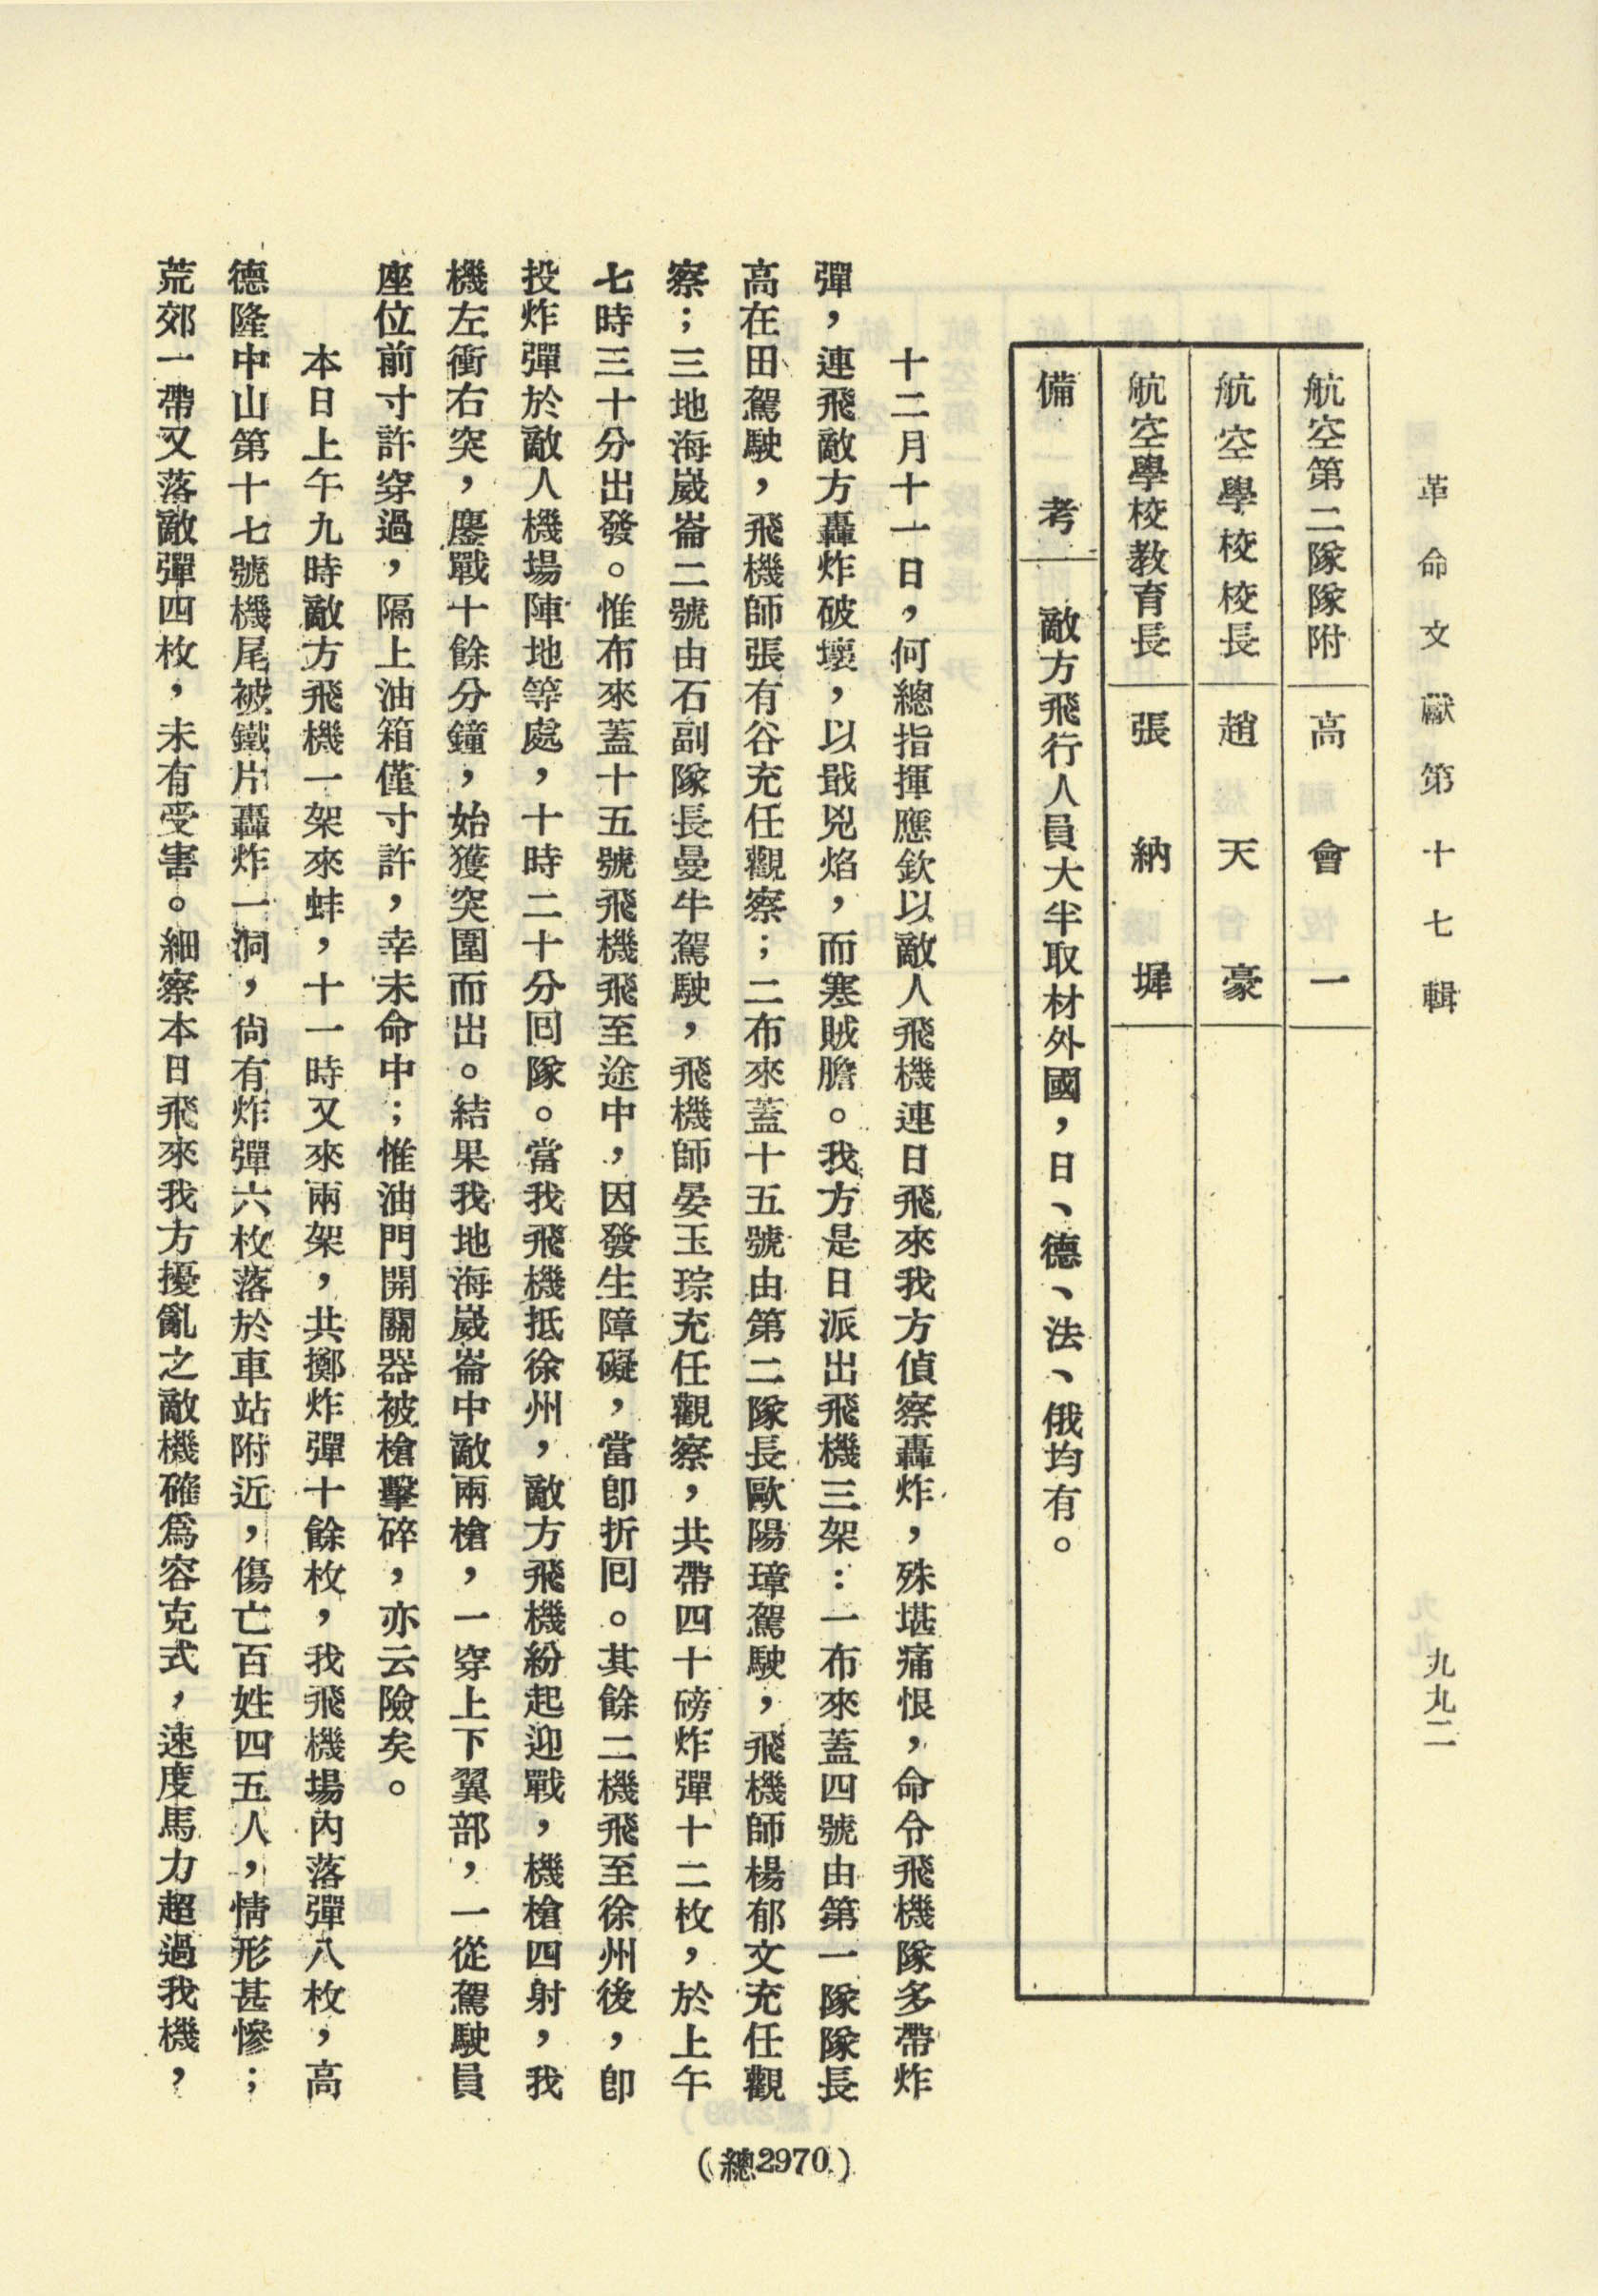 革命文獻第十七輯
九九二
航空第二隊隊附 高會一
航空學校校長 趙天豪
航空學校教育長 張納墀
備考 敵方飛行人員大半取材外國，日、德、法、俄均有。
十二月十一日，何總指揮應欽以敵人飛機連日飛來我方偵察轟炸，殊堪痛恨，命令飛機隊多帶炸
彈，連飛敵方轟炸破壞，以戢兇焰，而寒賊膽。我方是日派出飛機三架：一布來蓋四號由第一隊隊長
高在田駕駛，飛機師張有谷充任觀察；二布來蓋十五號由第二隊長歐陽璋駕駛，飛機師楊郁文充任觀
察；三地海崴崙二號由石副隊長曼牛駕駛，飛機師晏玉琮充任觀察，共帶四十磅炸彈十二枚，於上午
七時三十分出發。惟布來蓋十五號飛機飛至途中，因發生障礙，當卽折囘。其餘二機飛至徐州後，卽
投炸彈於敵人機場陣地等處，十時二十分囘隊。當我飛機抵徐州，敵方飛機紛起迎戰，機槍四射，我
機左衝右突，鏖戰十餘分鐘，始獲突圍而出。結果我地海崴崙中敵兩槍，一穿上下翼部，一從駕駛員
座位前寸許穿過，隔上油箱僅寸許，幸未命中；惟油門開關器被槍擊碎，亦云險矣。
本日上午九時敵方飛機一架來蚌，十一時又來兩架，共擲炸彈十餘枚，我飛機場內落彈八枚，高
德隆中山第十七號機尾被鐵片轟炸一洞，尙有炸彈六枚落於車站附近，傷亡百姓四五人，情形甚慘；
荒郊一帶又落敵彈四枚，未有受害。細察本日飛來我方擾亂之敵機確爲容克式，速度馬力超過我機，
（總2970）